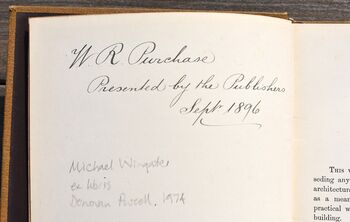 W. R. Purchase
Presented by the Publishers
Sept 1896
Michael Wingate
ex libris
Donovan Purcell, 1974
THIS
seding any
architectur
as a mean
practical w
building.